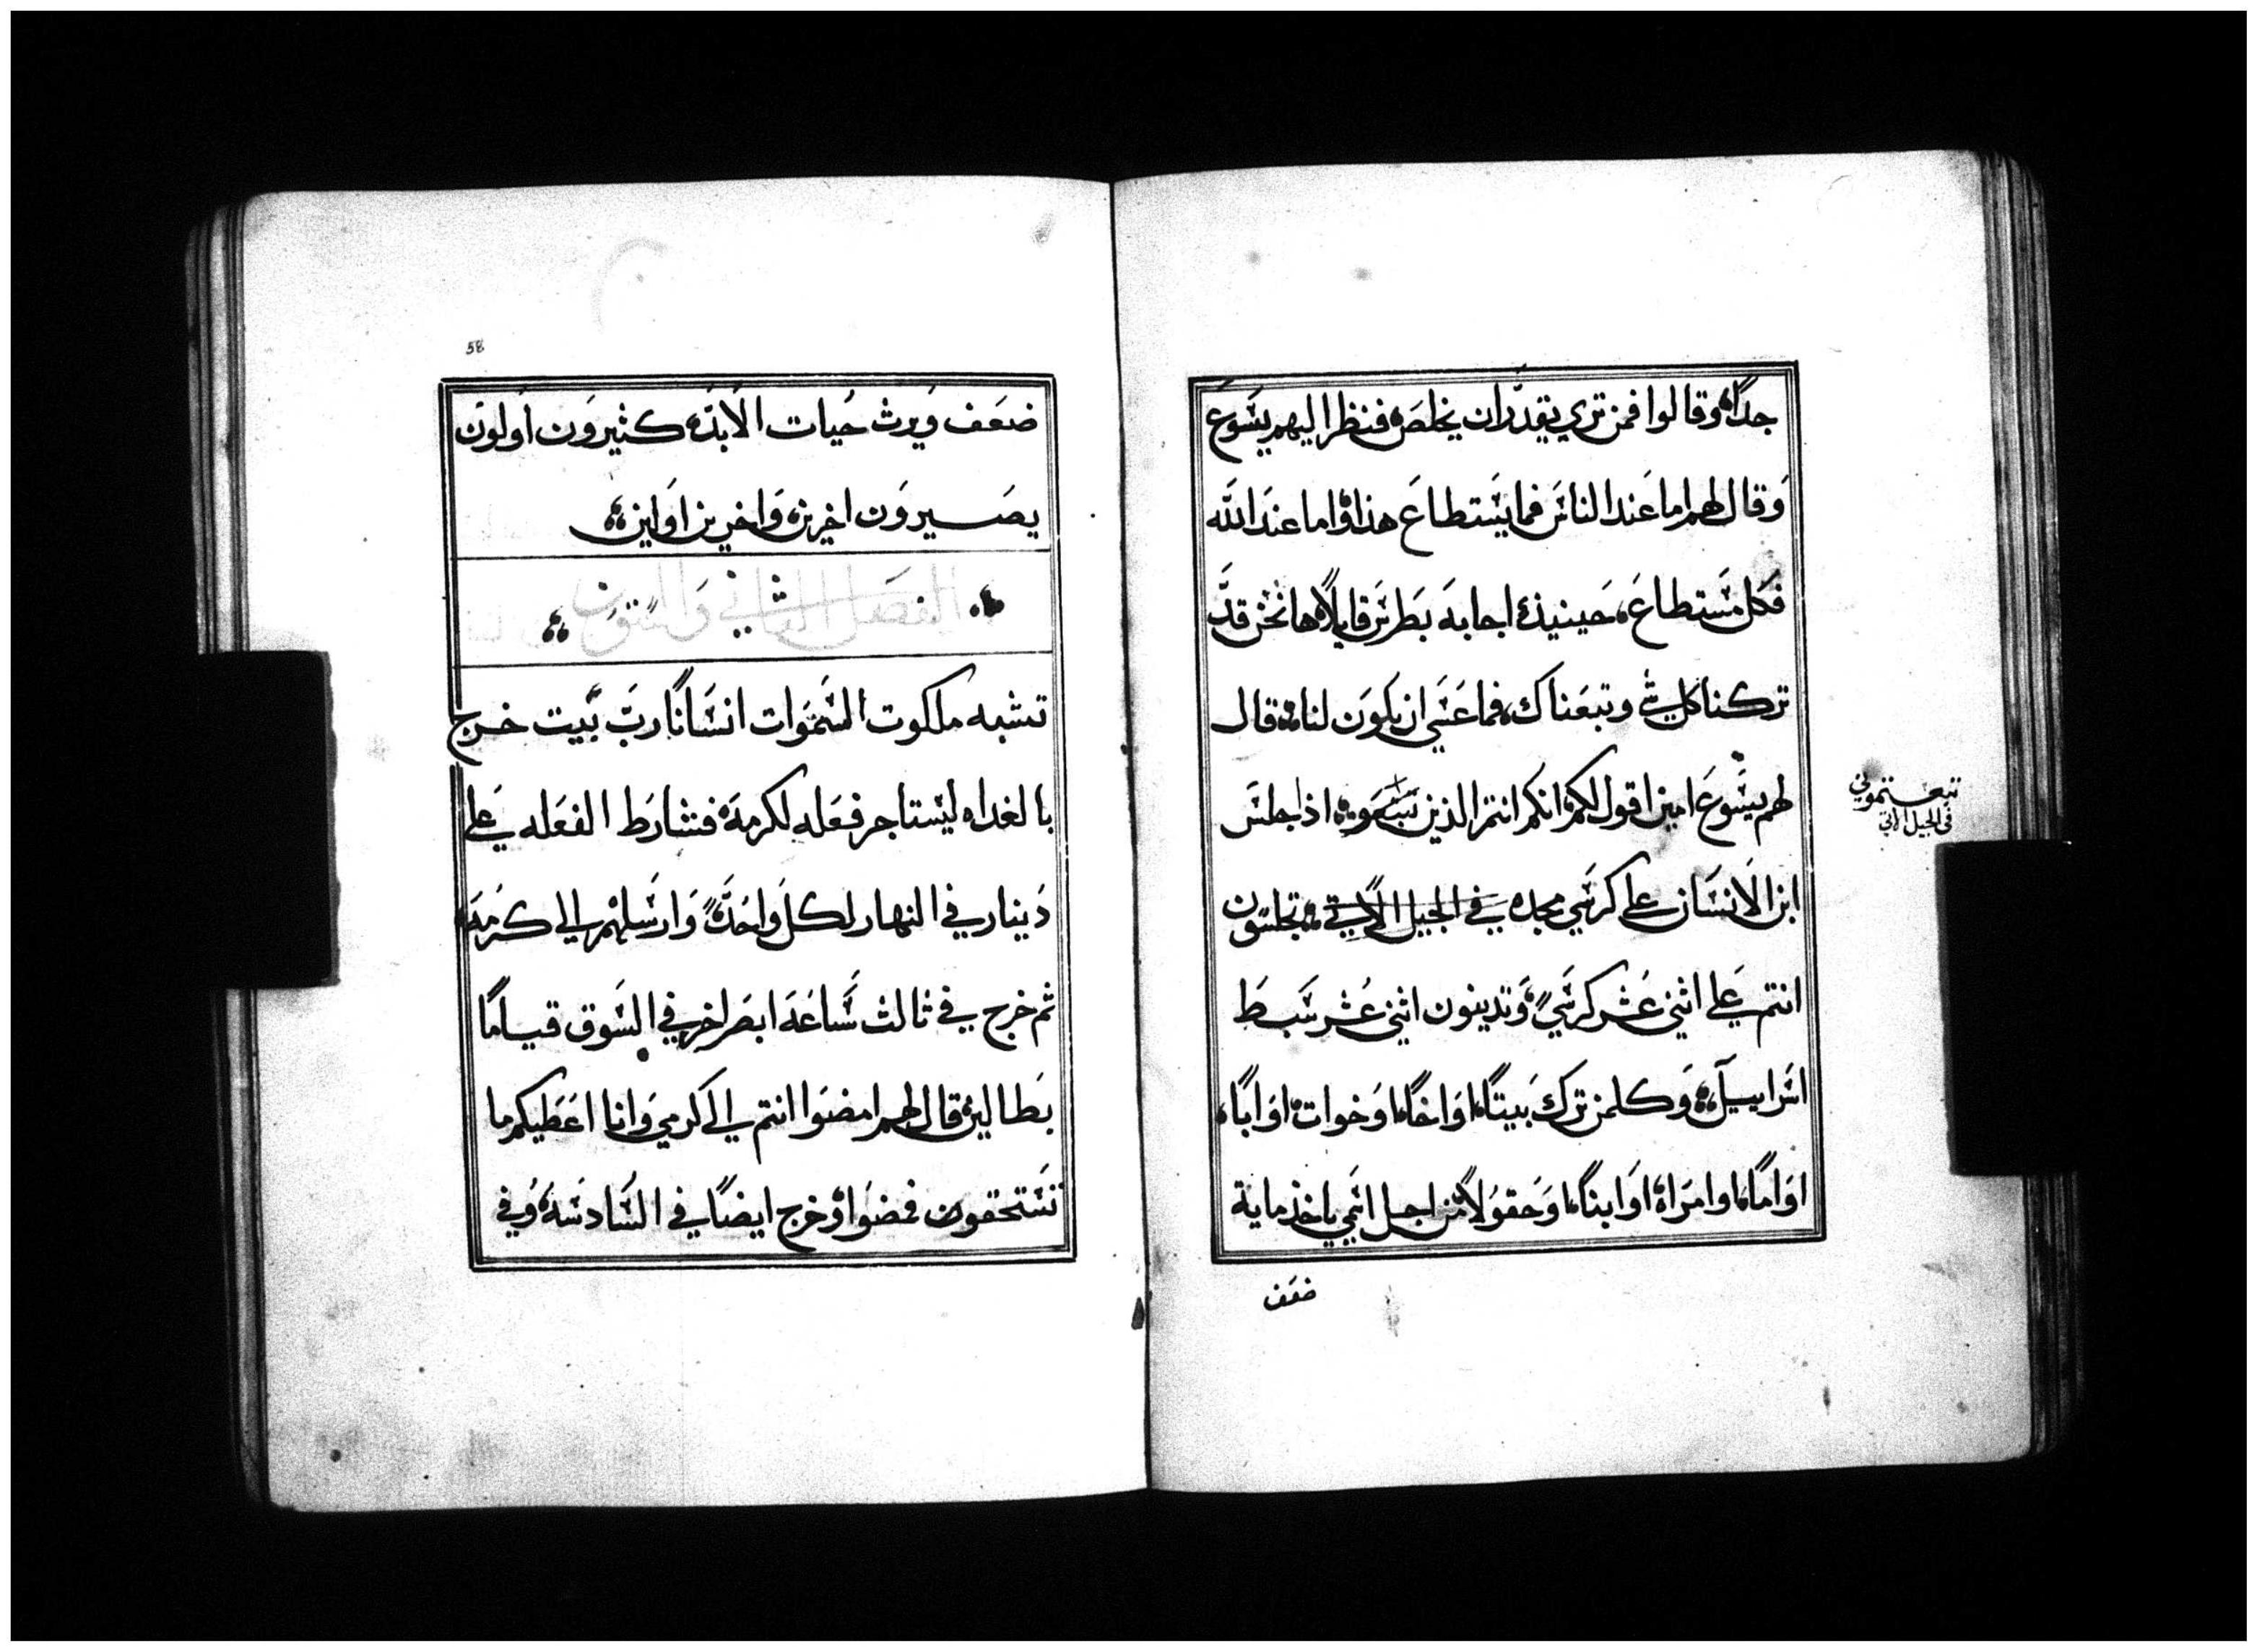 جداً، وقالوا فمن تري يقدر ان يخلص، فنظر اليهم يسوع
وقال لهم اما عند الناس فما يستطاع هذا، واما عند الله
فكل مستطاع، حينيذ اجابه بطرس قايلاً، ها نحن قد
تركنا كل شي وتبعناك، فما عسي ان يكون لنا، قال
لهم يسوع امين اقول لكم، انكم انتم الذين اذا جلس
ابن الانسان علي كرسي مجده في الجيل الاتي، تجلسون
انتم علي اثني عشر كرسي، وتدينون اثني عشر سبط
اسراييل، وكلمن ترك بيتاً، او اخاً، او خوات، او اباً،
او اماً، او امراة، او ابناً، او حقولاً، من اجل اسمي ياخذ ماية
ضعف
تبعتموني
في الجيل الاتي
58
ضعف ويرث حيات الابد، كثيرون اولون
يصيرون اخرين، واخرين اولين
الفصل الثاني والستون
تشبه ملكوت السموات انساناً رب بيت خرج
بالغداه ليستاجر فعله لكرمه، فشارط الفعله علي
دينار في النهار لكل واحد، وارسلهم الي كرمه،
ثم خرج في ثالث ساعه ابصر اخر في السوق قياماً
بطالين، قال لهم امضوا انتم الي كرمي وانا اعطيكم ما
تستحقون فمضوا، وخرج ايضاً في السادسه، وفي